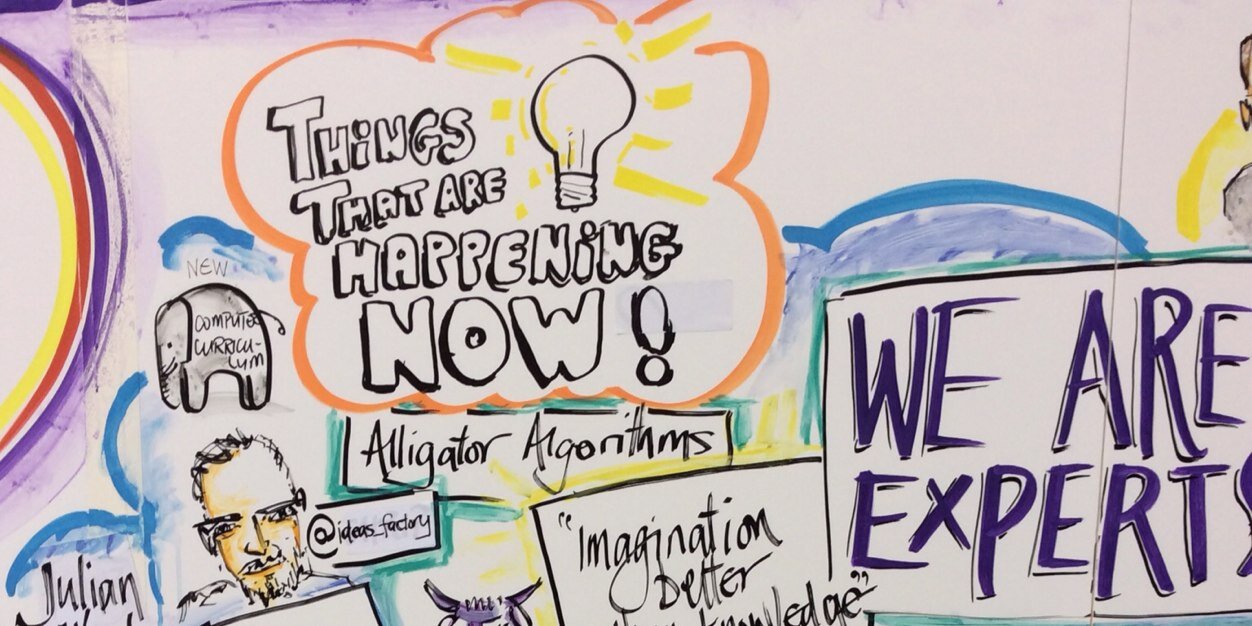 THiNGS
THAT ARE
HAPPENiNG
NOW!
NEW
COMPUTER
CURRICU-
LUM
Alligator Algorithms
@ideas_factory
Julian
"Imagination
Better
knowledge"
WE ARE
EXPERTS